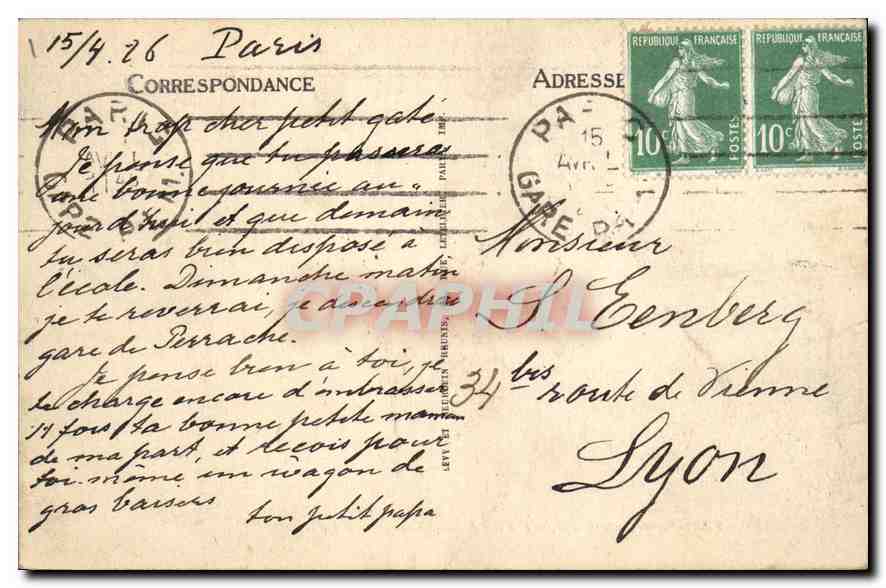 15/4.26 Paris
CORRESPONDANCE
Mon trop cher petit gaté
Je pense que tu passeras
une bonne journée au„
jourd'hui et que demain
tu seras bien disposé à
l'école. Dimanche matin
je te reverrai, je descendrai
gare de Perrache.
Je pense bien à toi, je
te charge encore d'embrasser
11 fois ta bonne petite maman
de ma part, et reçois pour
toi-même un wagon de
gros baisers
ton petit papa
LEVY ET NEURDEIN REUNIS, LETELLIER, PARIS IMP.
ADRESSE
REPUBLIQUE FRANÇAISE
10c POSTES
REPUBLIQUE FRANÇAISE
10c POSTES
15
AVR
GARE
Monsieur
S. Eenberg
34 bis route de Vienne
Lyon
CPAPHIL